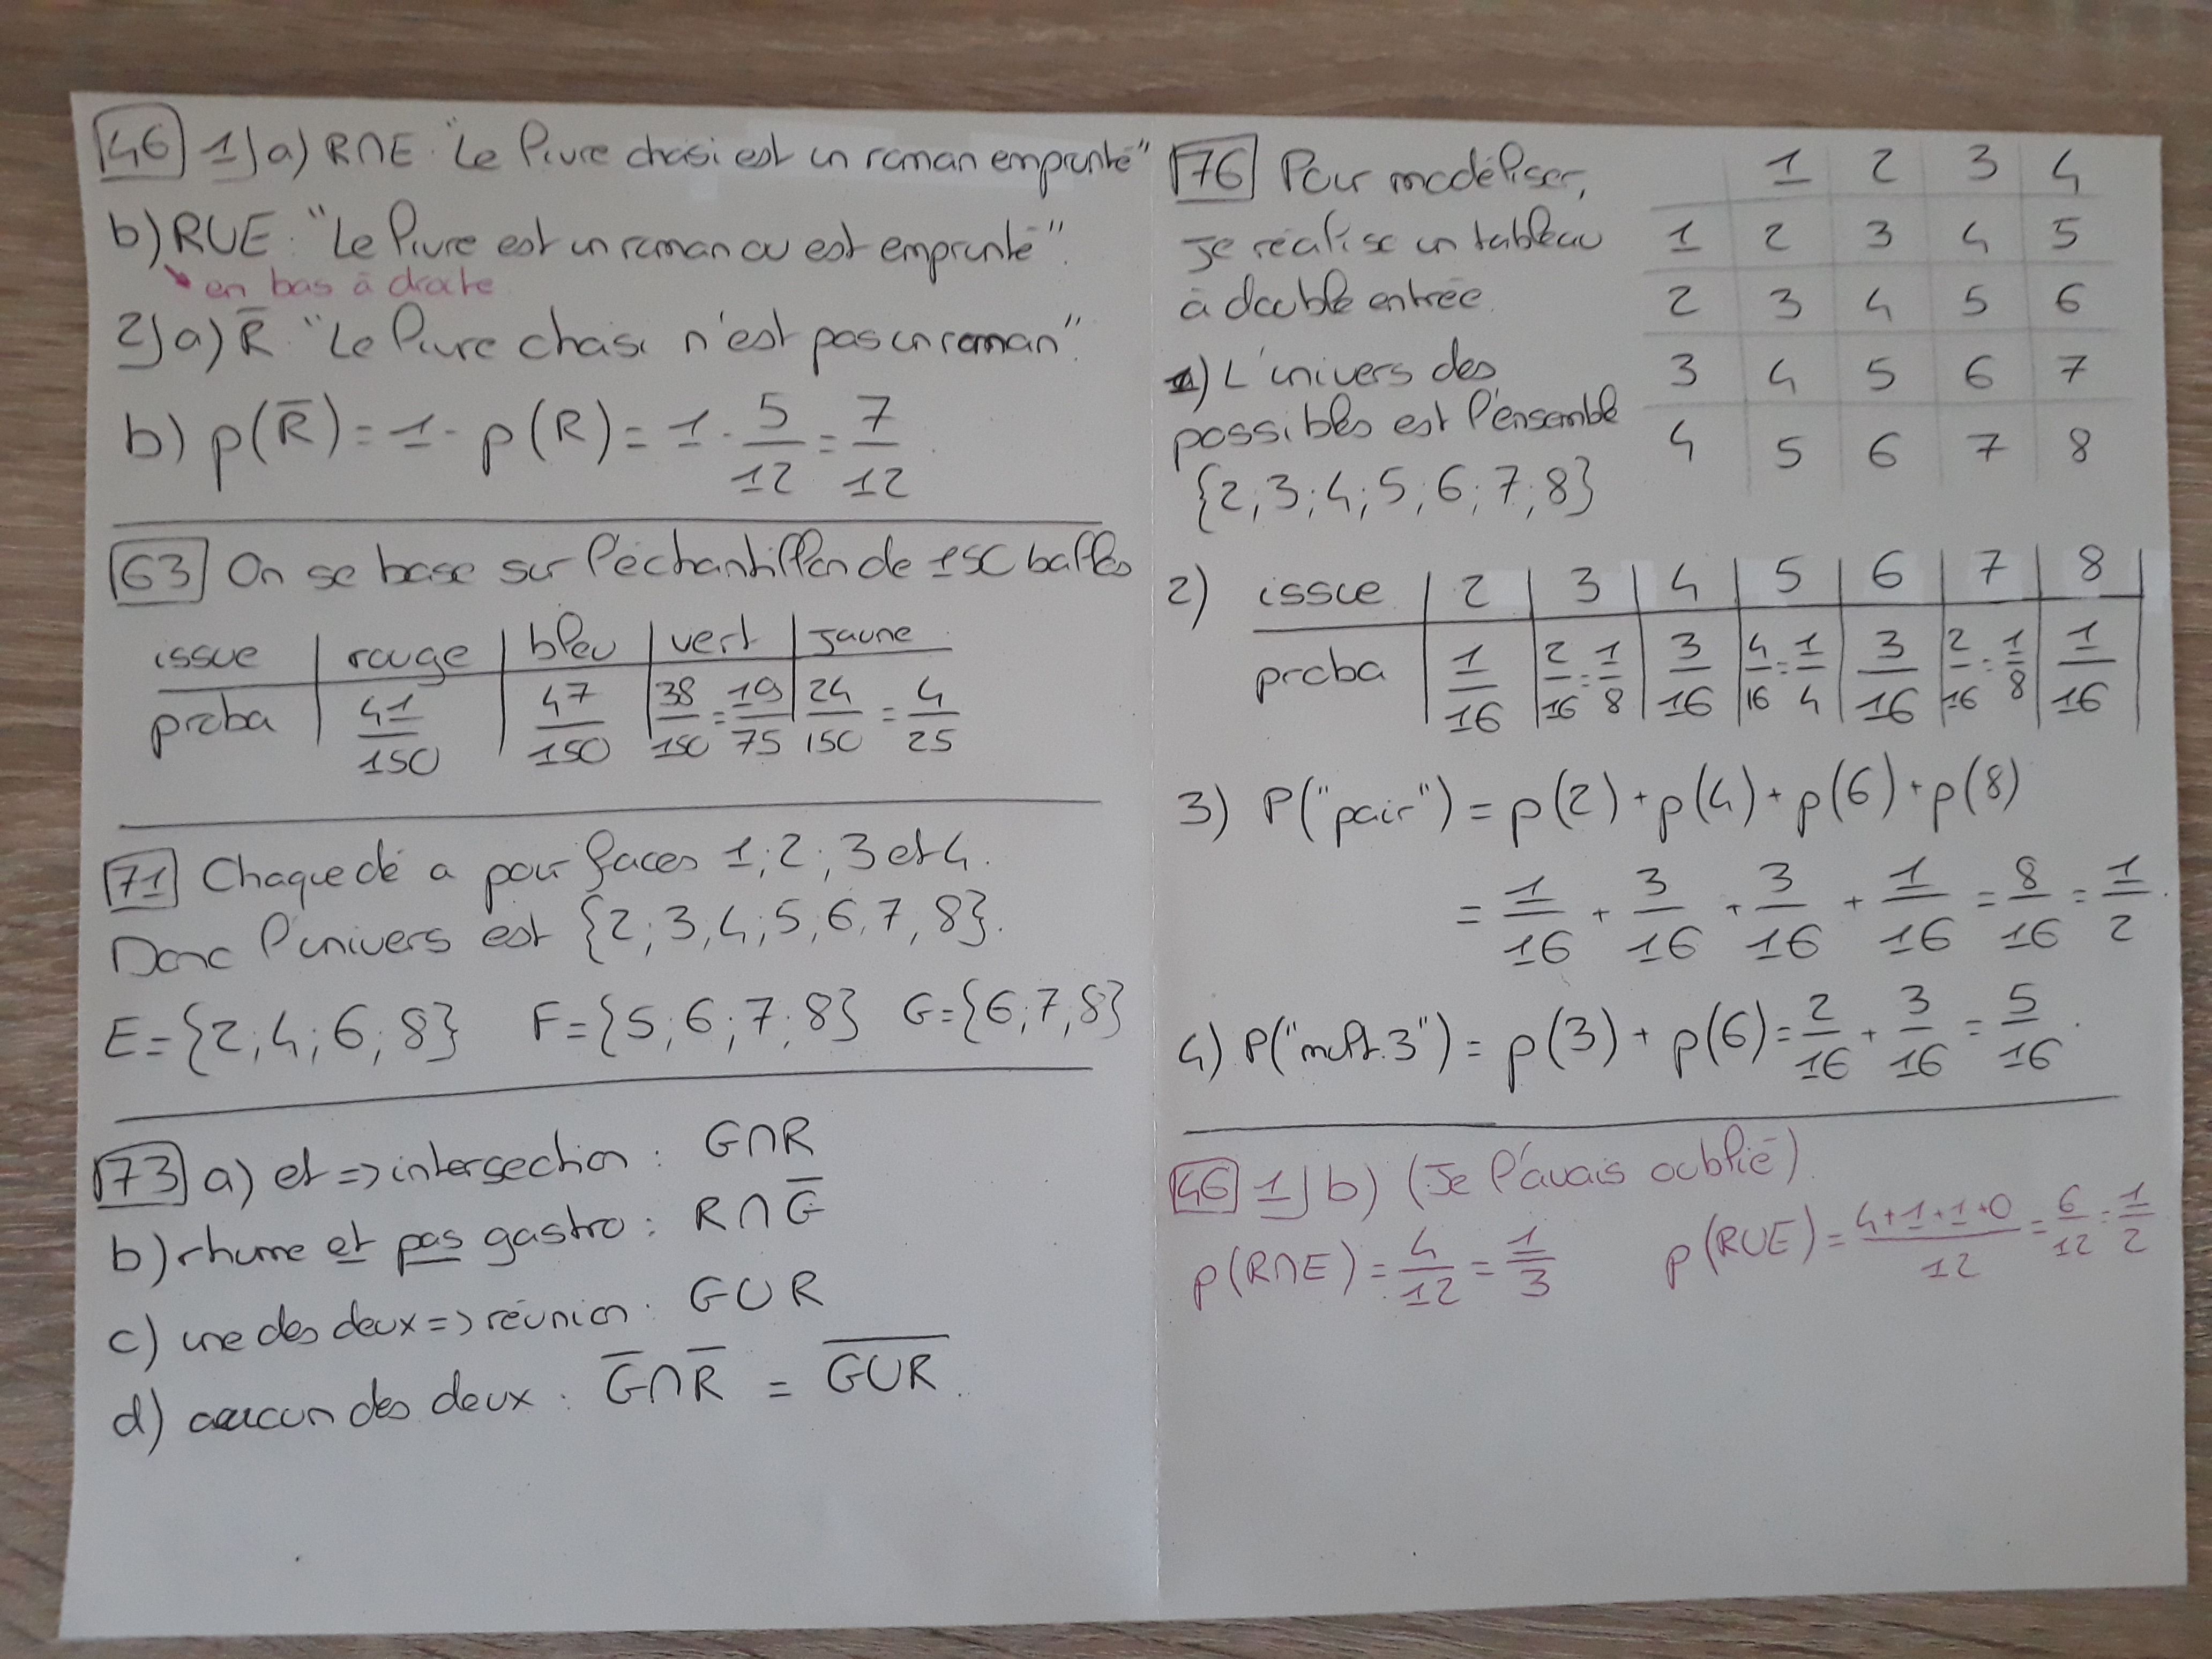 46 1) a) R∩E : "Le livre choisi est un roman emprunté"
b) R∪E : "Le livre est un roman ou est emprunté".
↘ en bas à droite
2) a) R̅ : "Le livre choisi n'est pas un roman".
b) p(R̅) = 1 - p(R) = 1 - 5/12 = 7/12.
63 On se base sur l'échantillon de 150 balles
issue | rouge | bleu | vert | jaune
proba | 41/150 | 47/150 | 38/150 = 19/75 | 24/150 = 4/25
71 Chaque dé a pour faces 1 ; 2 ; 3 et 4.
Donc l'univers est {2 ; 3 ; 4 ; 5 ; 6 ; 7 ; 8}.
E = {2 ; 4 ; 6 ; 8} F = {5 ; 6 ; 7 ; 8} G = {6 ; 7 ; 8}
73 a) et => intersection : G∩R
b) rhume et pas gastro : R∩G̅
c) une des deux => réunion : G∪R
d) aucun des deux : G̅∩R̅ = G̅∪̅R̅.
76 Pour modéliser,
je réalise un tableau
à double entrée.
1 2 3 4
1 2 3 4 5
2 3 4 5 6
3 4 5 6 7
4 5 6 7 8
1) L'univers des
possibles est l'ensemble
{2 ; 3 ; 4 ; 5 ; 6 ; 7 ; 8}
2) issue | 2 | 3 | 4 | 5 | 6 | 7 | 8 |
proba | 1/16 | 2/16 = 1/8 | 3/16 | 4/16 = 1/4 | 3/16 | 2/16 = 1/8 | 1/16 |
3) P("pair") = p(2) + p(4) + p(6) + p(8)
= 1/16 + 3/16 + 3/16 + 1/16 = 8/16 = 1/2.
4) P("mult. 3") = p(3) + p(6) = 2/16 + 3/16 = 5/16.
46 1) b) (Je l'avais oublié)
p(R∩E) = 4/12 = 1/3 p(R∪E) = (4+1+1+0)/12 = 6/12 = 1/2